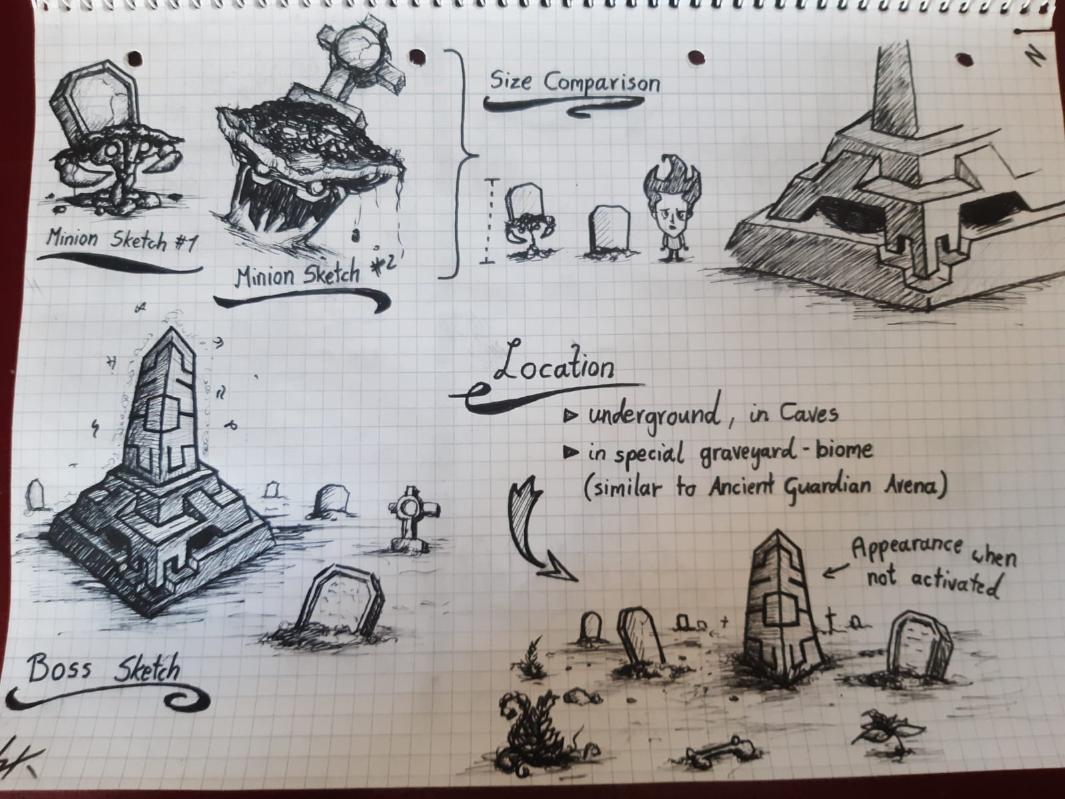 Minion Sketch #1
Minion Sketch #2
Size Comparison
Location
▷ underground, in Caves
▶ in special graveyard-biome
(similar to Ancient Guardian Arena)
Appearance when
not activated
Boss Sketch